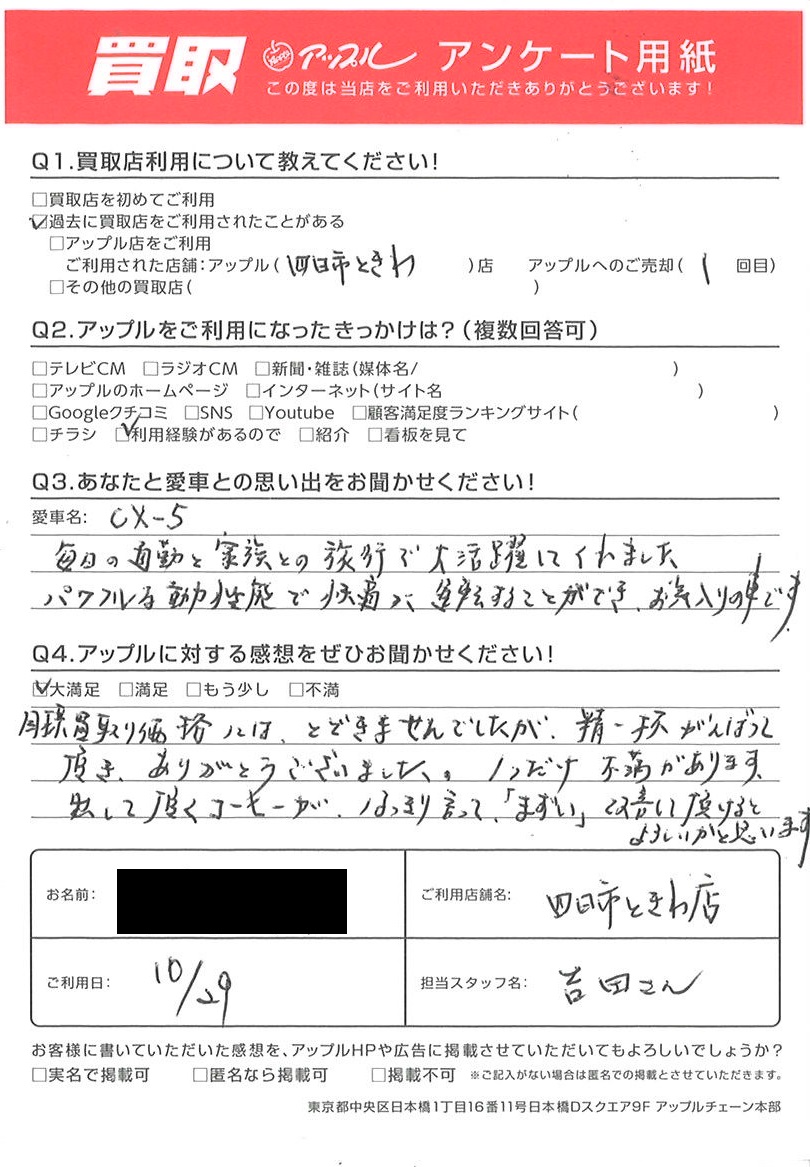 買取 アップル アンケート用紙
この度は当店をご利用いただきありがとうございます!
Q1.買取店利用について教えてください!
□買取店を初めてご利用
☑過去に買取店をご利用されたことがある
□アップル店をご利用
ご利用された店舗:アップル(四日市ときわ)店 アップルへのご売却(1回目)
□その他の買取店( )
Q2.アップルをご利用になったきっかけは?(複数回答可)
□テレビCM □ラジオCM □新聞・雑誌(媒体名/ )
□アップルのホームページ □インターネット(サイト名 )
□Googleクチコミ □SNS □Youtube □顧客満足度ランキングサイト( )
□チラシ ☑利用経験があるので □紹介 □看板を見て
Q3.あなたと愛車との思い出をお聞かせください!
愛車名: CX-5
毎日の通勤と家族との旅行で大活躍してくれました
パワフルな動性能で快適に運転することができ、お気入りの車です。
Q4.アップルに対する感想をぜひお聞かせください!
☑大満足 □満足 □もう少し □不満
目標買取り価格には、とどきませんでしたが、精一杯がんばって
頂き、ありがとうございました。1つだけ不満があります。
出して頂くコーヒーが、はっきり言って、「まずい」改善して頂けると
よろしいかと思います
お名前:
ご利用店舗名: 四日市ときわ店
ご利用日: 10/29
担当スタッフ名: 吉田さん
お客様に書いていただいた感想を、アップルHPや広告に掲載させていただいてもよろしいでしょうか?
□実名で掲載可 □匿名なら掲載可 □掲載不可 ※ご記入がない場合は匿名での掲載とさせていただきます。
東京都中央区日本橋1丁目16番11号日本橋Dスクエア9F アップルチェーン本部